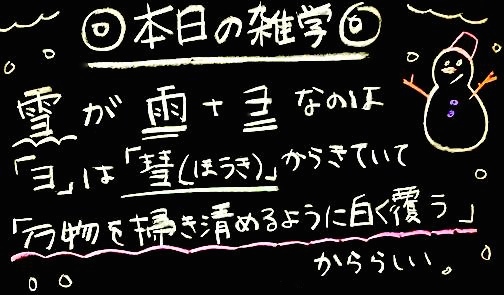 ◎本日の雑学◎
雪が雨+ヨなのは
「ヨ」は「彗(ほうき)」からきていて
「万物を掃き清めるように白く覆う」
かららしい。